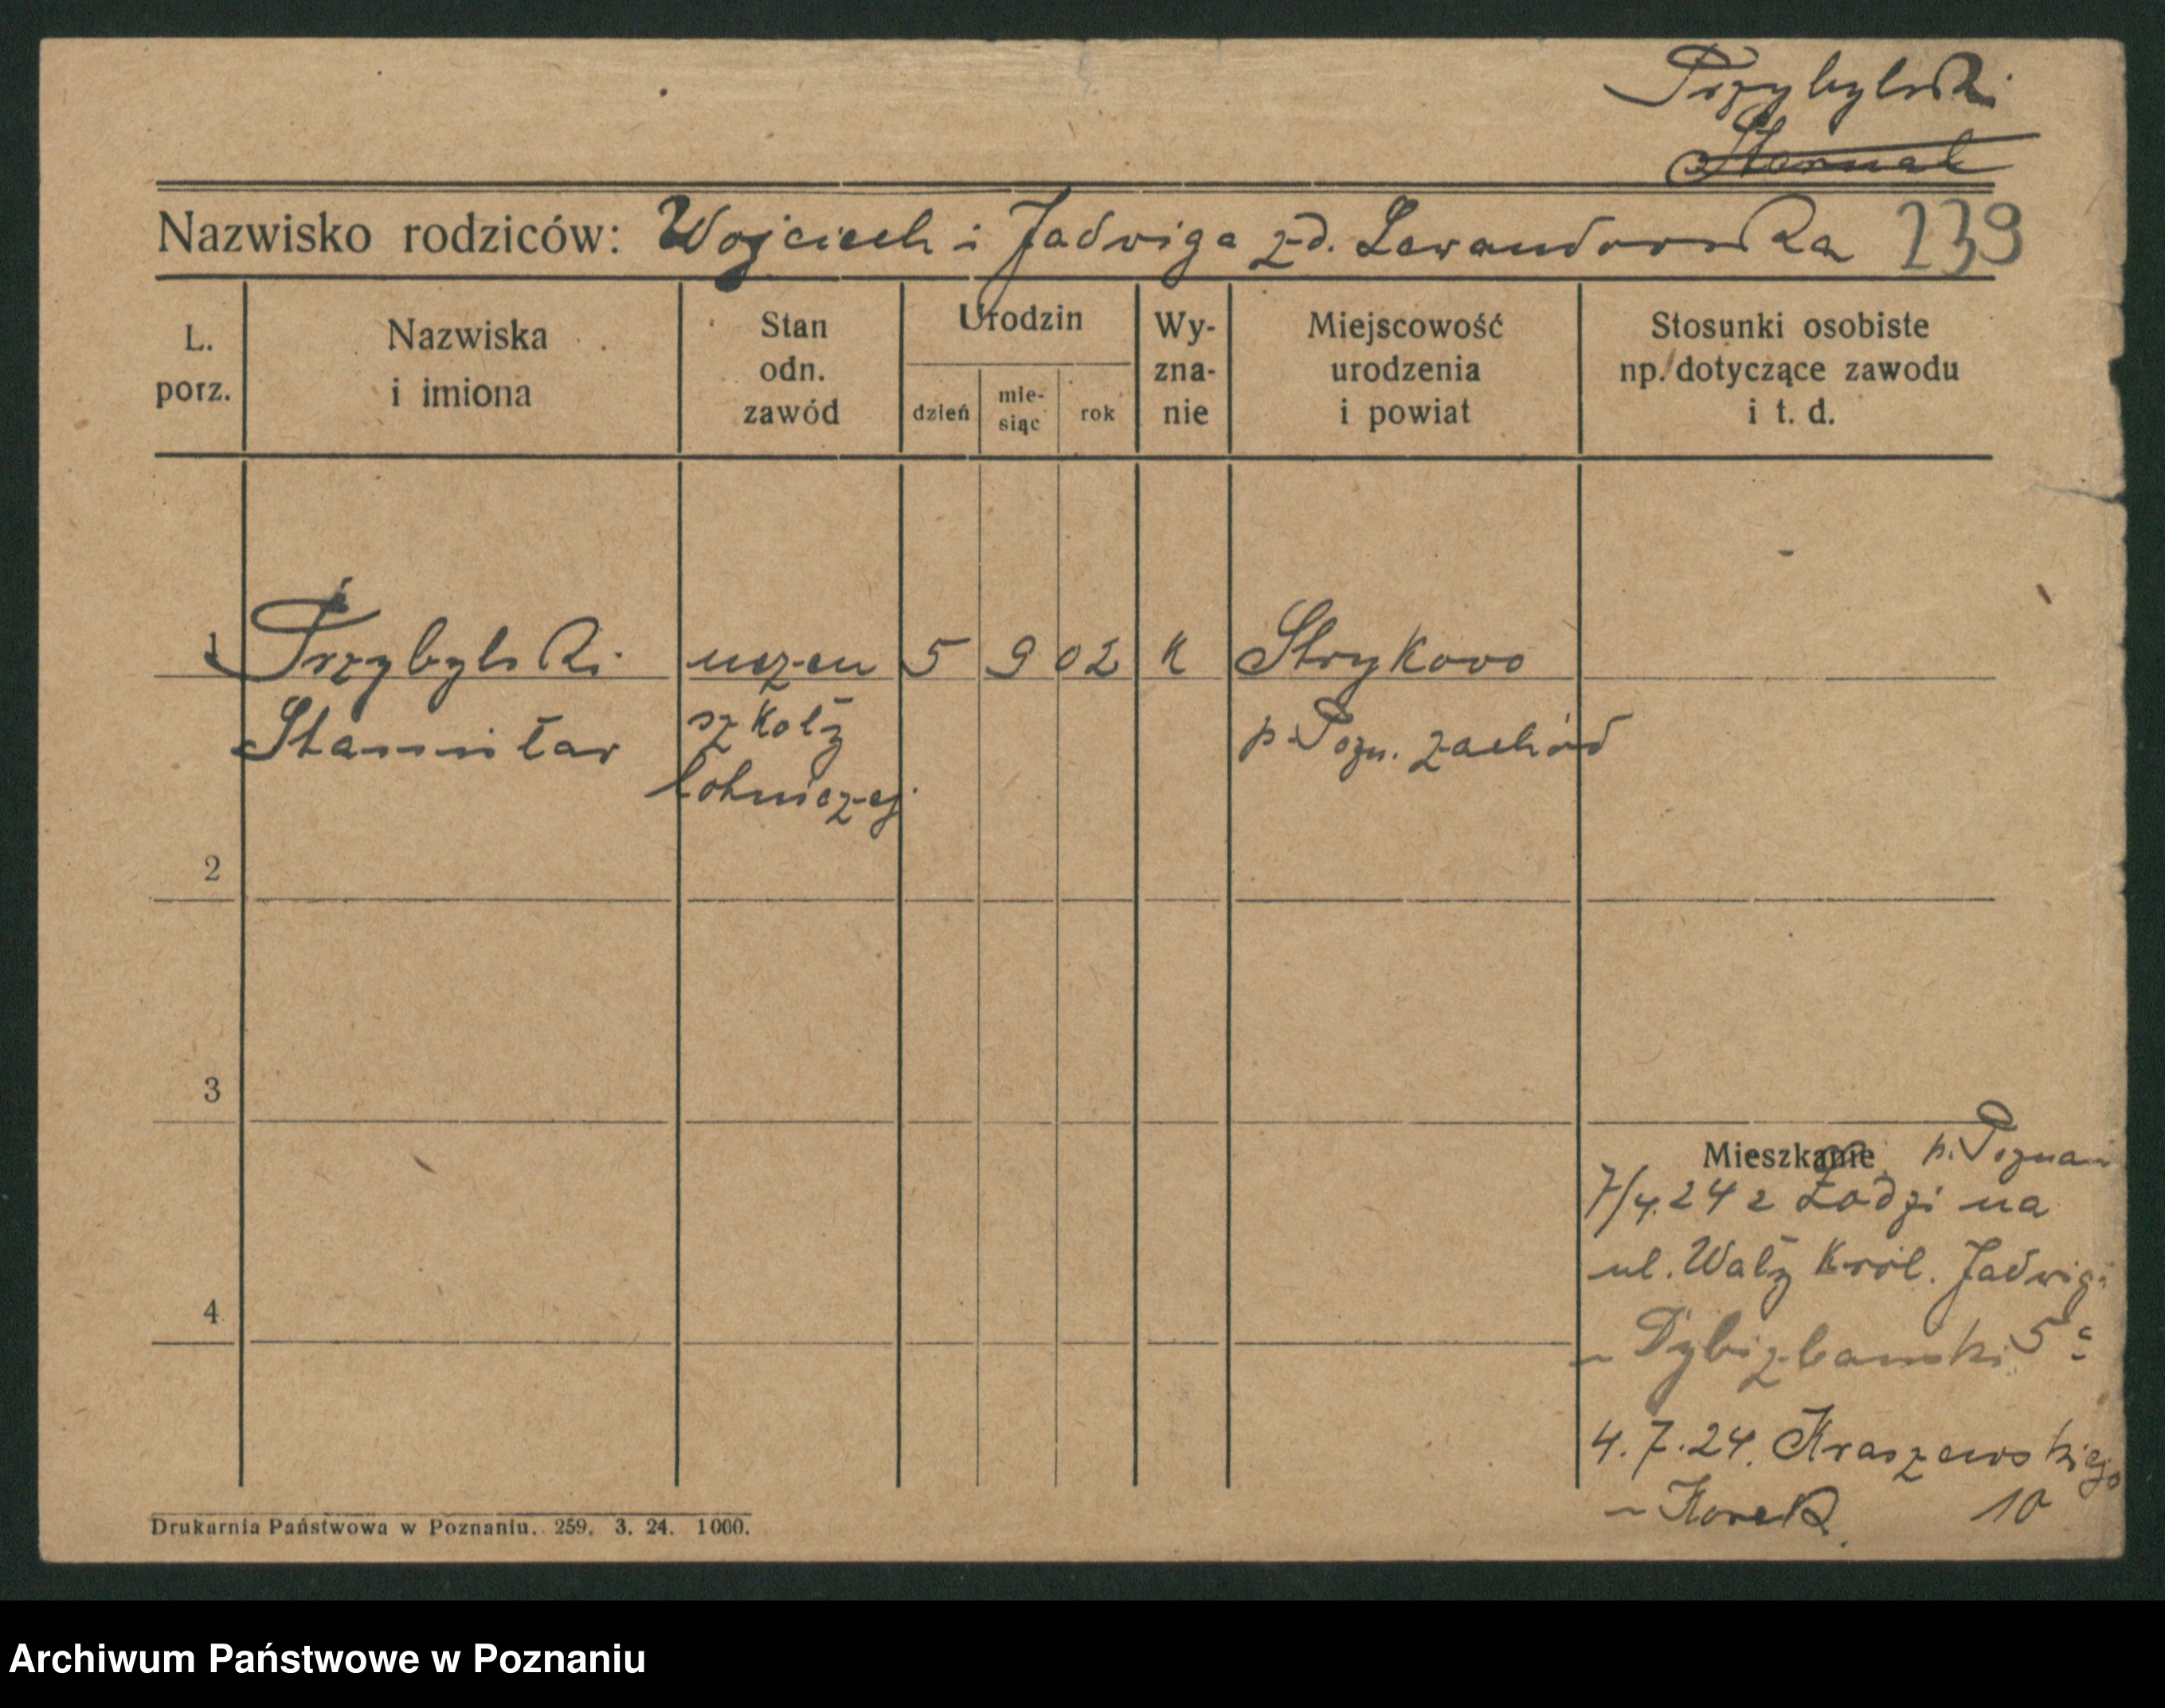 Przybylski
Nazwisko rodziców: Wojciech i Jadwiga zd. Lewandowska 239
L. porz.
Nazwiska i imiona
Stan odn. zawód
Urodzin
dzień
mie-siąc
rok
Wy-zna-nie
Miejscowość urodzenia i powiat
Stosunki osobiste np. dotyczące zawodu i t. d.
1 Przybylski uczen 5 9 02 K Strykowo
Stanisław szkoły p. Pozn. zachód
lotniczej
2
3
Mieszkanie p. Poznań
7/4.24 z Łodzi na
ul. Wały Król. Jadwigi
4
4.7.24. Kraszewskiego
10
Drukarnia Państwowa w Poznaniu. 259. 3. 24. 1000.
Archiwum Państwowe w Poznaniu